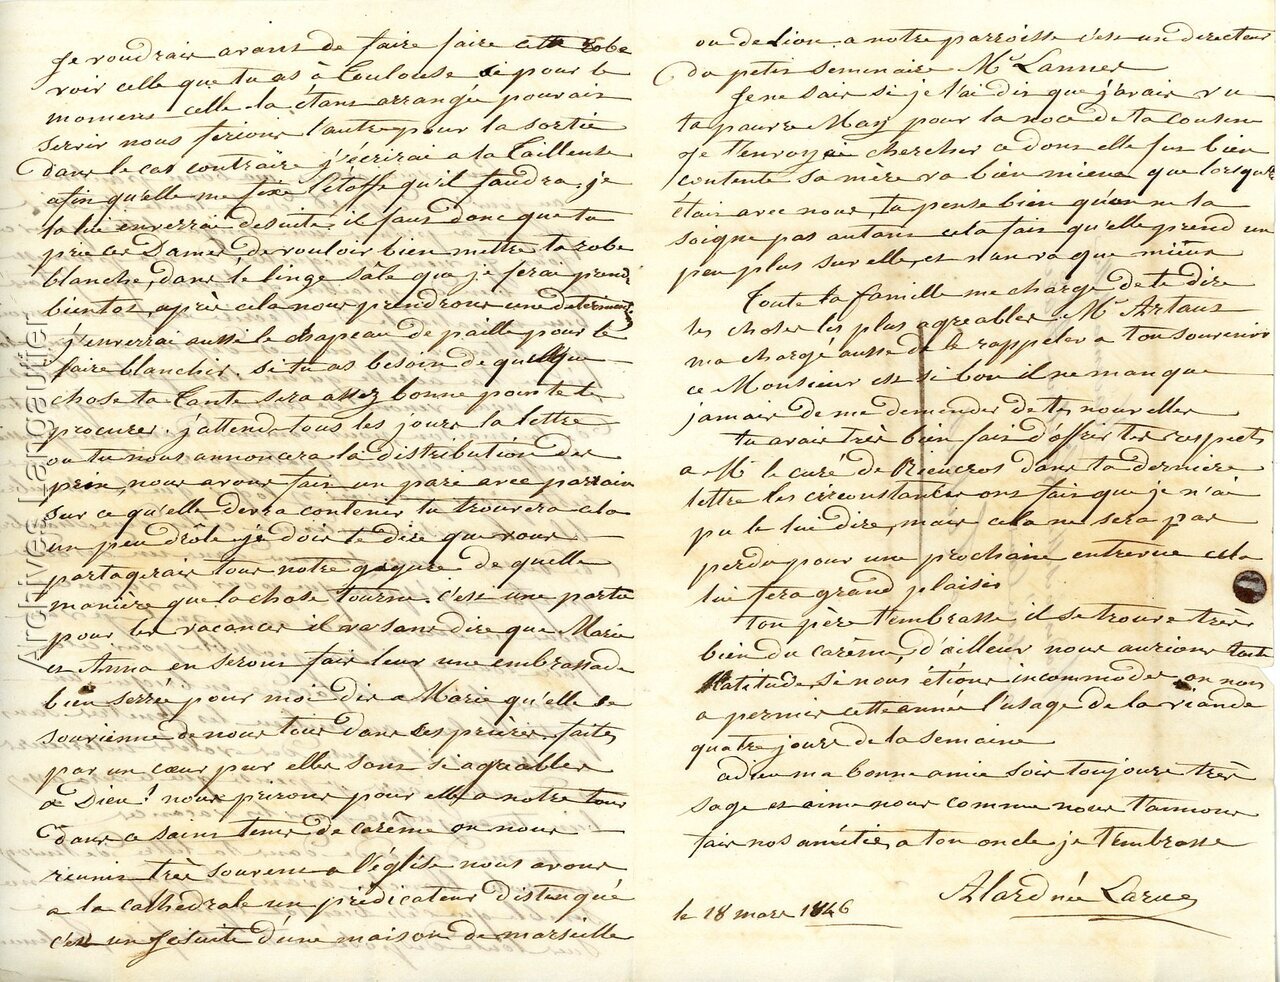 Je voudrais avant de faire faire cette robe
voir celle que tu as à Toulouse si pour le
moment celle la étant arrangée pouvait
servir nous ferions l'autre pour la sortie
dans le cas contraire j'écrirai a la Tailleuse
afin qu'elle me fixe l'étoffe qu'il faudra, je
la lui enverrai desuite, il faut donc que tu
prie ces Dames, de vouloir bien mettre ta robe
blanche, dans le linge sale que je ferai prend
bientot, après cela nous prendrons une determin
j'enverrai aussi le chapeau de paille pour le
faire blanchir. si tu as besoin de quelque
chose ta Tante sera assez bonne pour te le
procurer. j'attend tous les jours la lettre
ou tu nous annoncera la distribution des
prix, nous avons fait un pari avec parrain
sur ce qu'elle devra contenir tu trouvera cela
un peu drôle je dois te dire que vous
partagerais tous notre gageure de quelle
manière que la chose tourne. c'est une partie
pour les vacances il va sans dire que Marie
et Anna en seront fait leur une embrassade
bien serrée pour moi dis a Marie qu'elle se
souvienne de nous tous dans ses prières, faites
par un cœur pur elles sont si agréables
a Dieu! nous prierons pour elle a notre tour
dans ce saint tems de carême on nous
réunit très souvent a l'église nous avons
a la cathédrale un prédicateur distingué
c'est un Jésuite d'une maison de marseille
ou de Lion. a notre parroisse c'est un directeur
du petit seminaire Mr Lannes
Je ne sais si je t'ai dis que j'avais vu
ta pauvre May pour la noce de ta cousine
Je l'envoyai chercher a dont elle fut bien
contente sa mère va bien mieux que lorsque
était avec nous, tu pense bien qu'on ne la
soigne pas autant cela fait qu'elle prend un
peu plus sur elle, et n'en va que mieux
Toute la famille me charge de te dire
les choses les plus agreables Mr Artaut
ma chargé aussi de le rappeler a ton souvenir
ce Monsieur est si bon il ne manque
jamais de me demander de tes nouvelles
tu avais très bien fait d'offrir tes respects
a Mr le curé de Rieucros dans ta dernière
lettre les circonstances ont fait que je n'ai
pu le lui dire, mais cela ne sera pas
perdu pour une prochaine entrevue cela
lui fera grand plaisir
ton père t'embrasse il se trouve très
bien du carême, d'ailleur nous aurions toute
latitude, si nous étions incommodés on nous
a permis cette année l'usage de la viande
quatre jours de la semaine
adieu ma bonne amie sois toujours très
sage et aime nous comme nous t'aimons
fais nos amitiés a ton oncle je t'embrasse
Alard née Larue
le 18 mars 1846
Archives Langautier